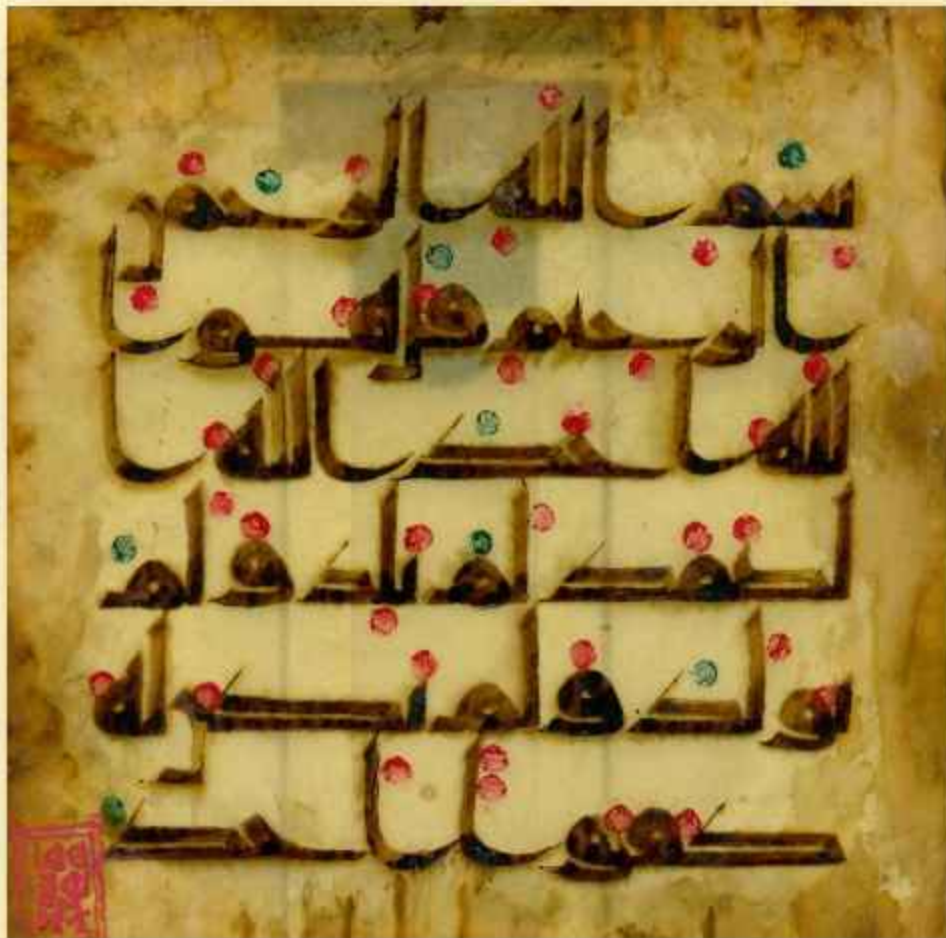 بسم الله الرحمن
الرحيم قل هو ا
لله احد الله ا
لصمد لم يلد و لم
يولد و لم يكن له
كفوا احد